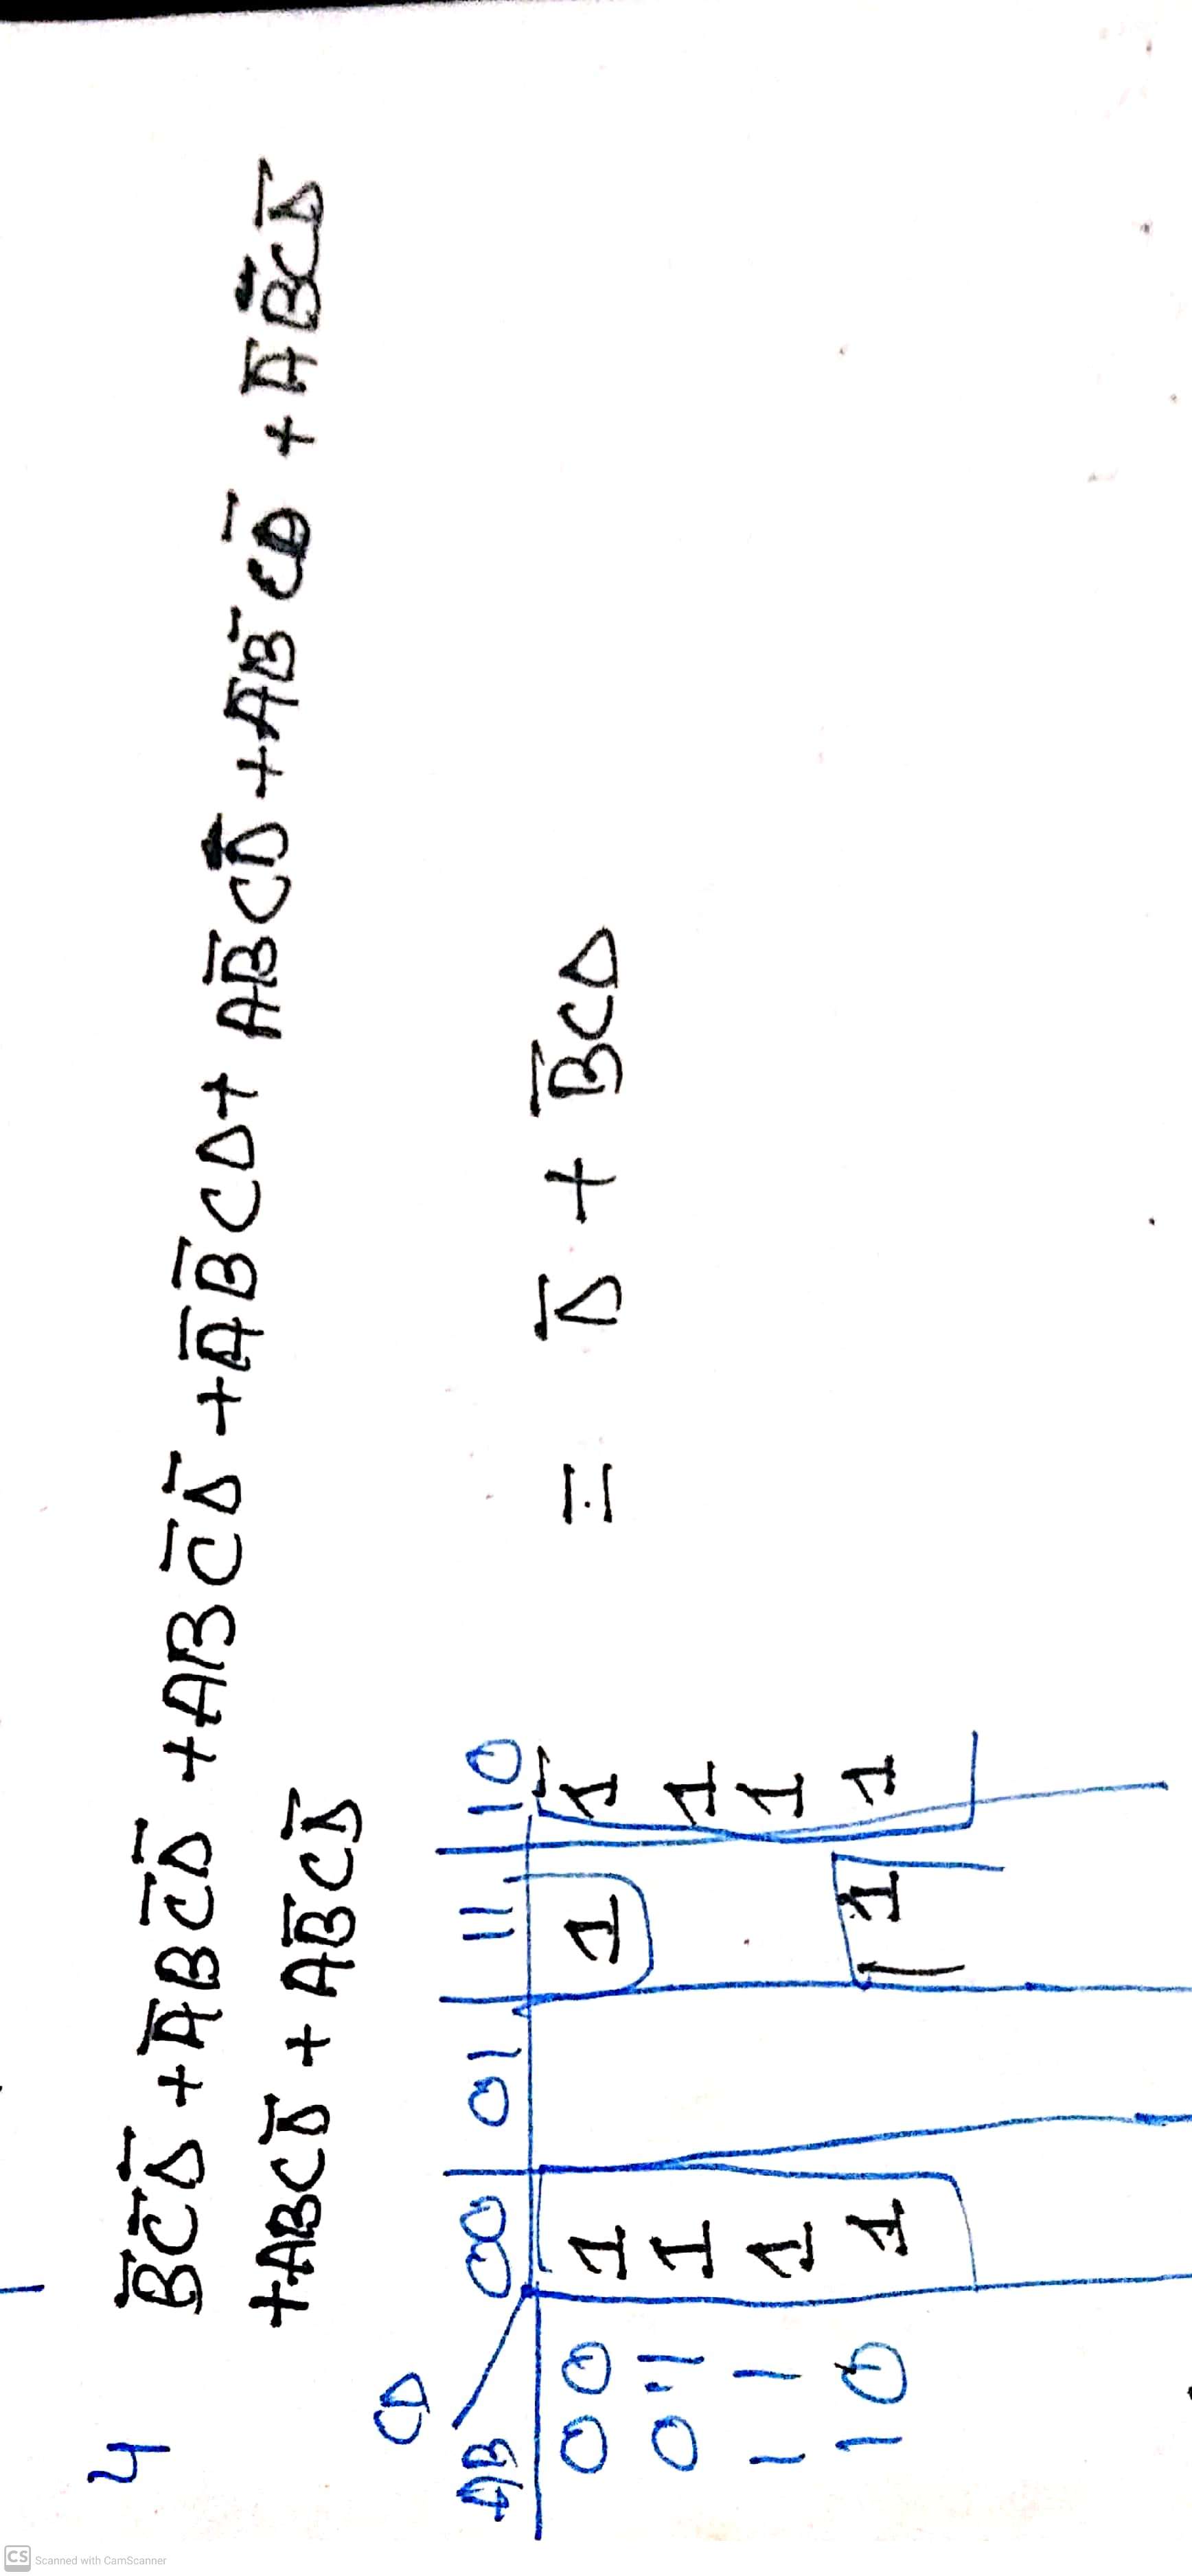 4 B̄C̄D̄ +ĀBC̄D̄ +ABC̄D̄ +ĀB̄CD+ AB̄CD̄ +ĀB̄CD̄ + ĀB̄CD̄
+ABCD̄ + AB̄CD̄
CD
AB 00 01 11 10
00 1 1 1 = D̄ + B̄CD
01 1 1
11 1 1
10 1 1 1
CS Scanned with CamScanner